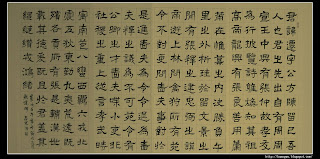 君諱遷字公方陳留己吾
人也君之先出自有周周
宣王中興有張仲以孝友
為行披覽詩雅煥知其祖
高帝龍興有張良善用籌
策在帷幕之內決勝負千
里之外析珪於留文景之
間有張釋之建忠弼之謨
帝遊上林問禽狩所有苑
令不對更問嗇夫嗇夫事
對於是進嗇夫為令令退為嗇
夫釋之議為不可苑令有
公卿之才嗇夫喋喋小吏非
社稷之重上從言孝武時
寓南苞八蠻西羈六戎北
震五狄東勤九夷荒遠既
殯各貢所有張是輔漢世
載其德爰既且於君蓋其
繵縺纘戎鴻緒